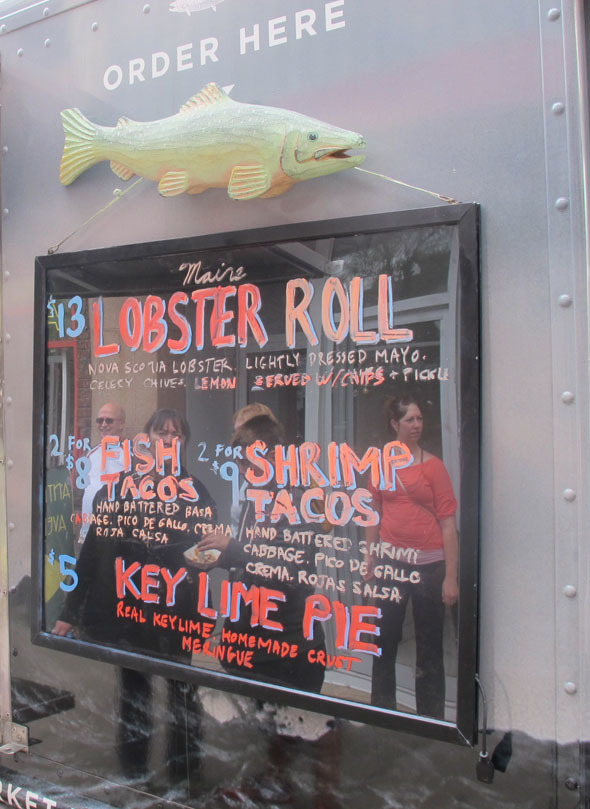 ORDER HERE
Maine
$13 LOBSTER ROLL
NOVA SCOTIA LOBSTER. LIGHTLY DRESSED MAYO.
CELERY CHIVES. LEMON SERVED W/CHIPS + PICKLE
2 FOR $8 FISH TACOS
HAND BATTERED BASA
CABBAGE. PICO DE GALLO. CREMA
ROJA CALSA
2 FOR $9 SHRIMP TACOS
HAND BATTERED SHRIMP
CABBAGE. PICO DE GALLO
CREMA. ROJAS SALSA
$5 KEY LIME PIE
REAL KEYLIME HOMEMADE CRUST
MERINGUE
RKET